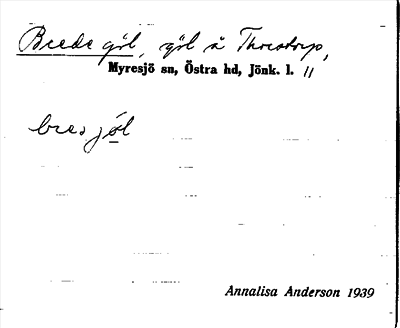 Brede göl, göl å Thorstorp,
Myresjö sn, Östra hd, Jönk. l. 11
bres jöl
Annalisa Anderson 1939